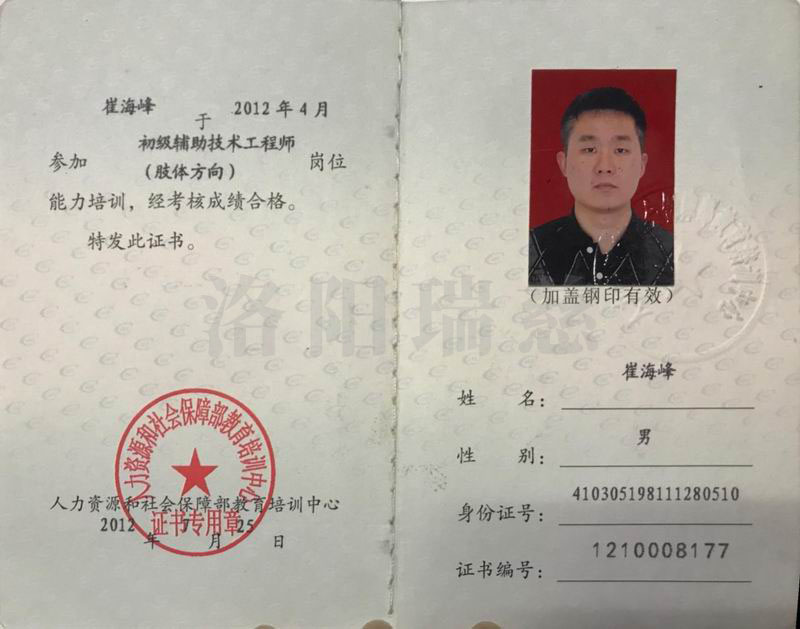 崔海峰 于 2012 年 4 月
参加 初级辅助技术工程师
（肢体方向） 岗位
能力培训，经考核成绩合格。
特发此证书。
洛阳瑞慈
人力资源和社会保障部教育培训中心
证书专用章
人力资源和社会保障部教育培训中心
2012 年 7 月 25 日
（加盖钢印有效）
姓 名：崔海峰
性 别：男
身份证号：410305198111280510
证书编号：1210008177